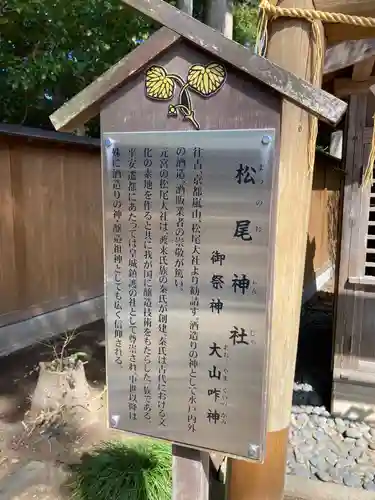 松尾神社
まつのおじんじゃ
御祭神 大山咋神
おおやまくいのかみ
往古、京都嵐山、松尾大社より勧請す。酒造りの神として水戸内外
の酒造、酒販業者の崇敬が篤い。
元宮の松尾大社は、渡来氏の秦氏が創建。秦氏は古代における文
化の素地を作ると共に我が国に醸造技術をもたらした一族である。
平安遷都にあたっては皇城鎮護の社として尊崇され、中世以降は
特に酒造りの神、醸造祖神としても広く信仰される。